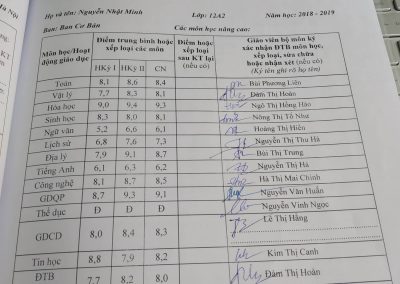 à Nội
Họ và tên: Nguyễn Nhật Minh Lớp: 12A2 Năm học: 2018 - 2019
Ban: Ban Cơ Bản Các môn học nâng cao:
Môn học/Hoạt động giáo dục Điểm trung bình hoặc xếp loại các môn Điểm hoặc xếp loại sau KT lại (nếu có) Giáo viên bộ môn ký xác nhận ĐTB môn học, xếp loại, sửa chữa hoặc nhận xét (nếu có) (Ký tên ghi rõ họ tên)
HKỳ I HKỳ II CN
Toán 8,1 8,6 8,4 Bùi Phương Liên
Vật lý 7,7 8,3 8,1 Đàm Thị Hoàn
Hóa học 9,0 9,4 9,3 Ngô Thị Hồng Hảo
Sinh học 8,3 8,0 8,1 Nông Thị Tố Như
Ngữ văn 5,2 6,6 6,1 Hoàng Thị Hiền
Lịch sử 6,8 7,6 7,3 Nguyễn Thị Thu Hà
Địa lý 7,9 9,1 8,7 Bùi Thị Trung
Tiếng Anh 6,1 6,3 6,2 Nguyễn Thị Hà
Công nghệ 8,1 8,7 8,5 Hà Thị Mai Chinh
GDQP 8,7 9,3 9,1 Nguyễn Văn Huấn
Thể dục Đ Đ Đ Nguyễn Vinh Ngọc
GDCD 8,0 8,4 8,3 Lê Thị Hằng
Tin học 8,8 7,9 8,2 Kim Thị Canh
ĐTB 7,7 8,2 8,0 Đàm Thị Hoàn